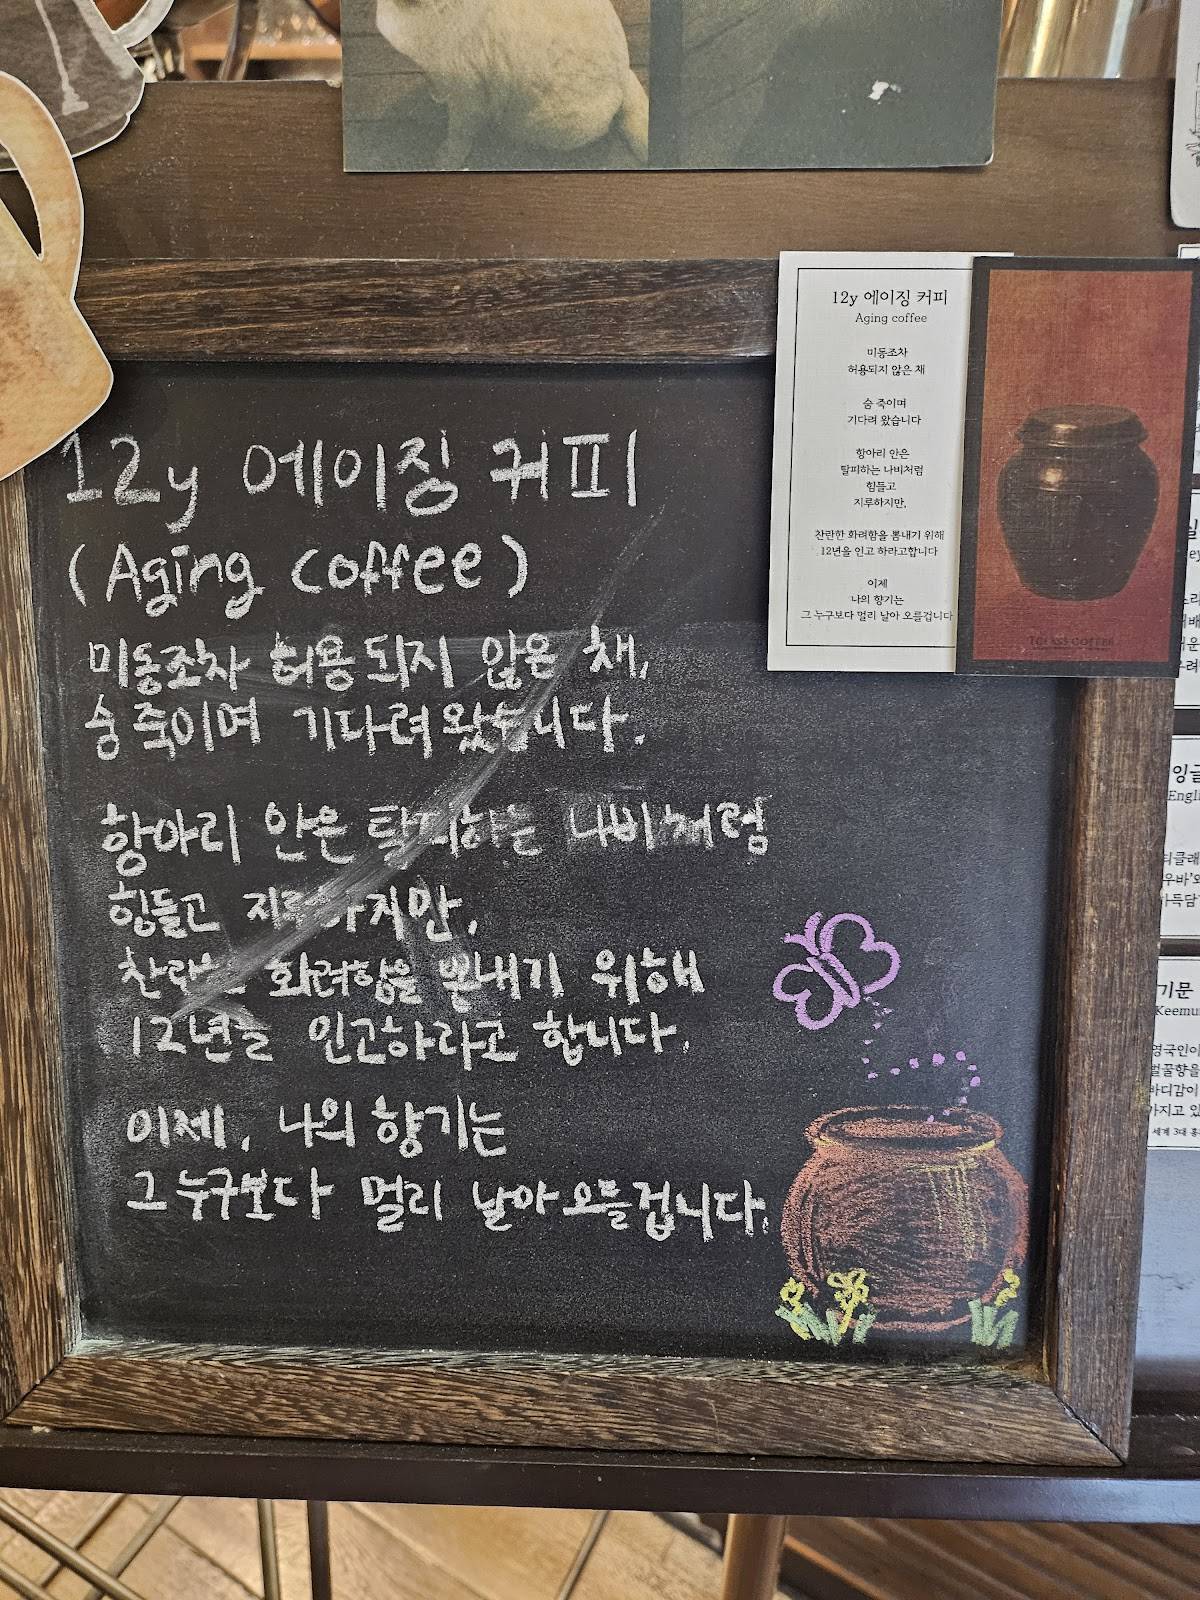 12y 에이징 커피
(Aging coffee)
미동조차 허용되지 않은 채,
숨죽이며 기다려왔습니다.
항아리 안은 탈피하는 나비처럼
힘들고 지루하지만,
찬란한 화려함을 뽐내기 위해
12년을 인고하라고 합니다.
이제, 나의 향기는
그누구보다 멀리 날아오를겁니다.
12y 에이징 커피
Aging coffee
미동조차
허용되지 않은 채
숨 죽이며
기다려 왔습니다
항아리 안은
탈피하는 나비처럼
힘들고
지루하지만,
찬란한 화려함을 뽐내기 위해
12년을 인고 하라고합니다
이제
나의 향기는
그 누구보다 멀리 날아 오를겁니다
COFFEE
기문
세계 3대